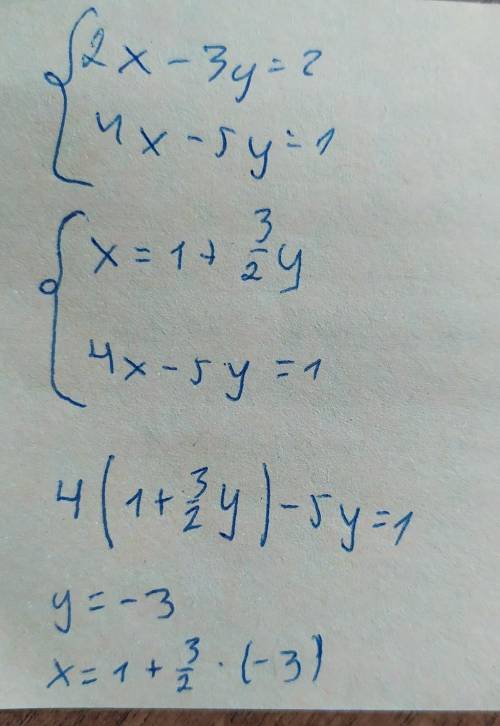 2x - 3y = 2
4x - 5y = 1
x = 1 + 3/2 y
4x - 5y = 1
4(1 + 3/2 y) - 5y = 1
y = -3
x = 1 + 3/2 · (-3)